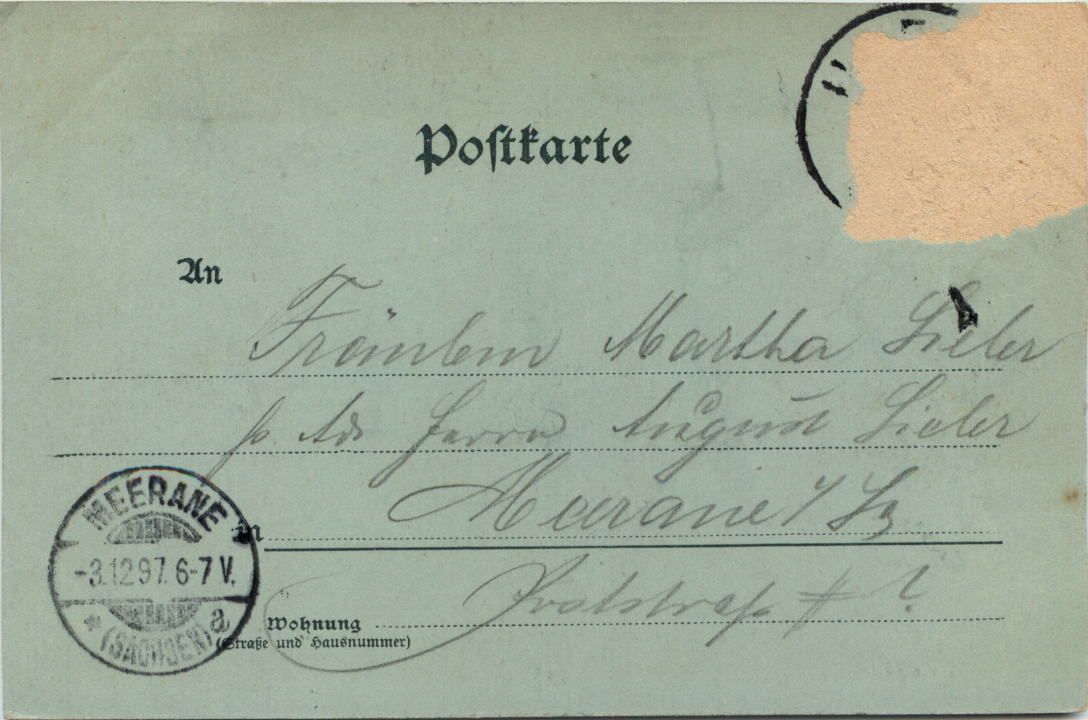 Postkarte
An
Fräulein Martha
p. Adr Herrn August
MEERANE
in Meerane i/ Sa
-3.12.97. 6-7 V.
* (SACHSEN) a
Wohnung
(Straße und Hausnummer)